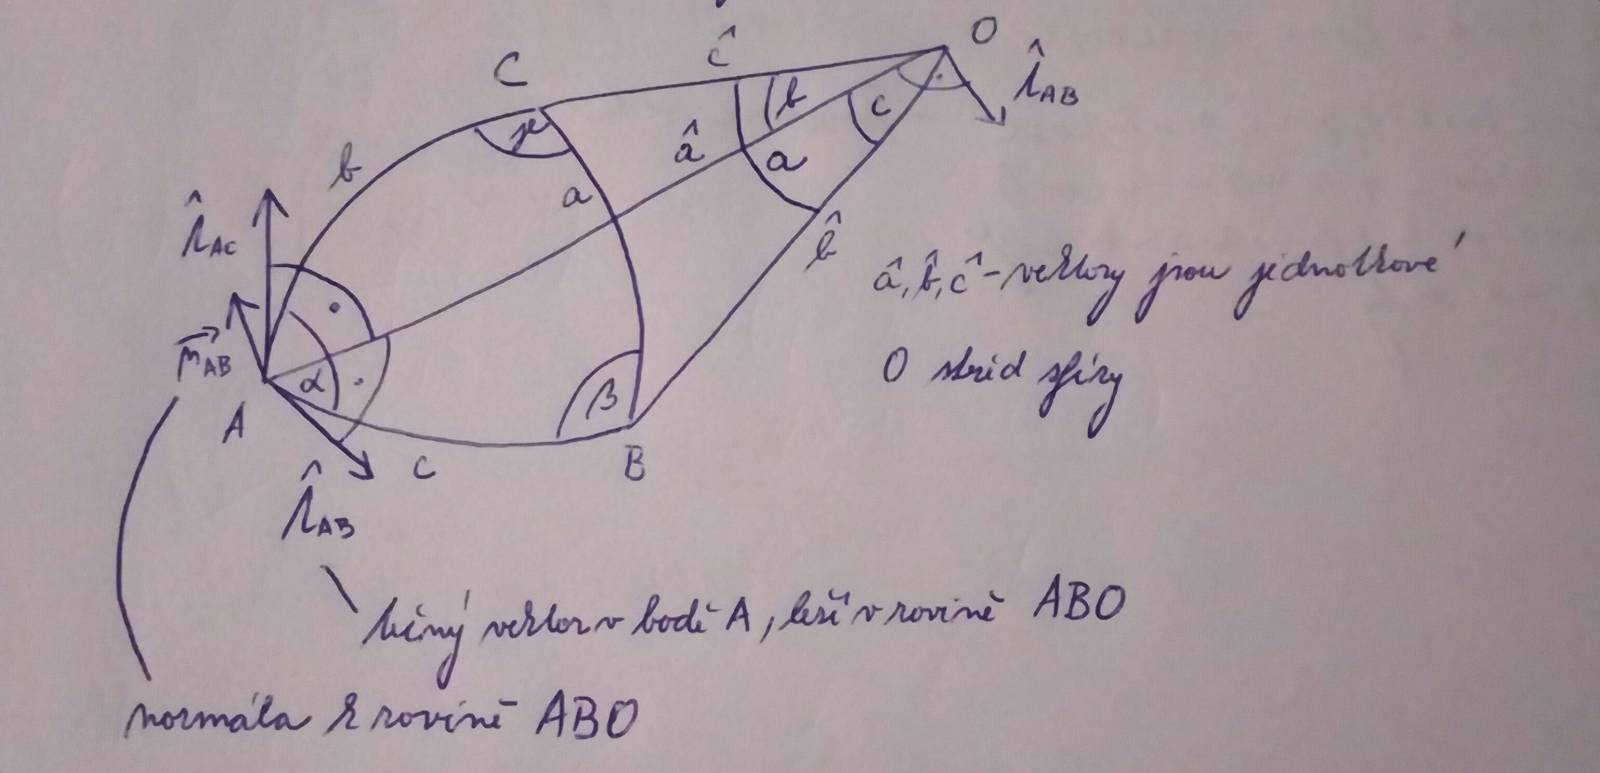 O
C
ĉ
t̂AB
b
c
b
â
a
a
γ
t̂AC
b̂
â, b̂, ĉ - vektory jsou jednotkové
nAB
α
β
O střed sféry
A
c
B
t̂AB
tečný vektor v bodě A, leží v rovině ABO
normála k rovině ABO